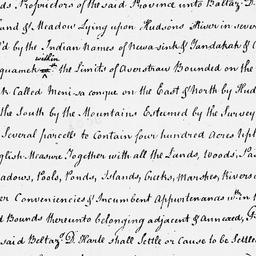 ds Proprietors of the said Province unto Baltaz: D.
Land & Meadow Lying upon Hudsons River in sever
l'd by the Indian Names of Newasink & Yandakah & C
within
quamek the Limits of Averstraw Bounded on the
k Called Menisaconque on the East & North by Hud
the South by the Mountains Esteemed by the Survey
Several parcells to Contain four hundred Acres Eight
glish Measure Together with all the Lands, Woods, Pas
adows, Pools, Ponds, Islands, Creeks, Marshes, Rivers
er Conveniencies & Incumbent Appurtenances wth in
d Bounds thereunto belonging adjacent & Annexed,
said Beltaz: D. Harte shall Settle or Cause to be Settled